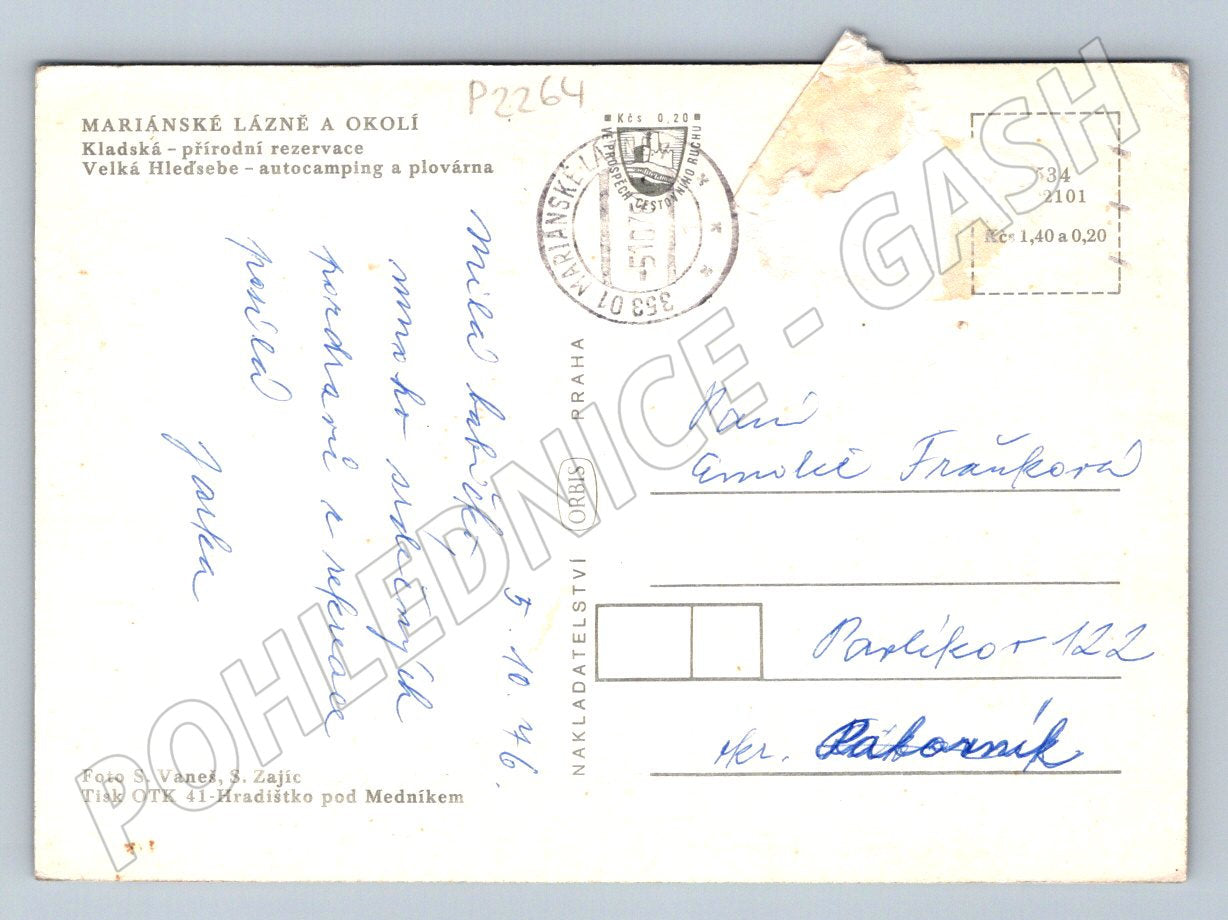 P2264
MARIÁNSKÉ LÁZNĚ A OKOLÍ
Kladská – přírodní rezervace
Velká Hleďsebe – autocamping a plovárna
Kčs 0,20
VE PROSPĚCH CESTOVNÍHO RUCHU
353 01 MARIÁNSKÉ LÁZ
534
2101
Kčs 1,40 a 0,20
Milá babičko,
mnoho srdečných
pozdravů z rekreace
posílá
Jarka
5. 10. 76.
NAKLADATELSTVÍ ORBIS PRAHA
Paní
Fraňková
Pavlíkov 122
okr. Rakovník
Foto S. Vaneš, S. Zajíc
Tisk OTK 41-Hradištko pod Medníkem
POHLEDNICE - GASH